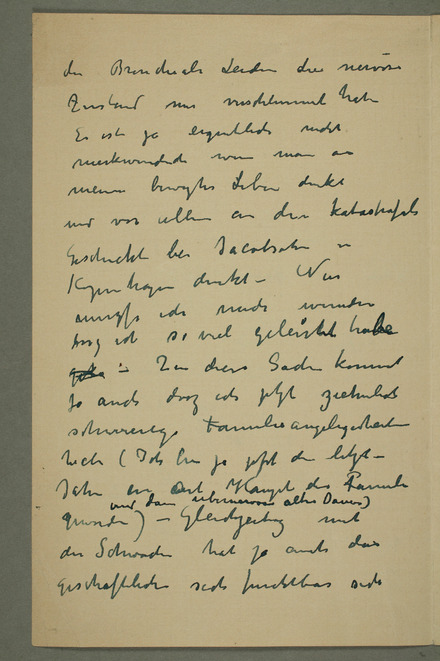 der Bronchiale Leiden die nervöse
Zustand nur verschlimmert habe
Es ist ja eigentlich nicht
merkwürdig wenn man an
meine bewegtes Leben denkt
und vor allem an die katastrofale
Geschichte bei Jacobsohn in
Kopenhagen denkt – Nur
muss ich mich wundern
dass ich so viel geleistet habe
– Zu diese Sachen kommt
ja auch dass ich jetzt ziemlich
schwierige Familieangelegenheiten
habe (Ich bin ja jetzt die letzte
Jahre ein Art Haupt des Familie
und dann uebernervöse alte Damen)
geworden) – Gleichzeitig mit
den Schweden hat ja auch das
geschäftliche sich furchtbar